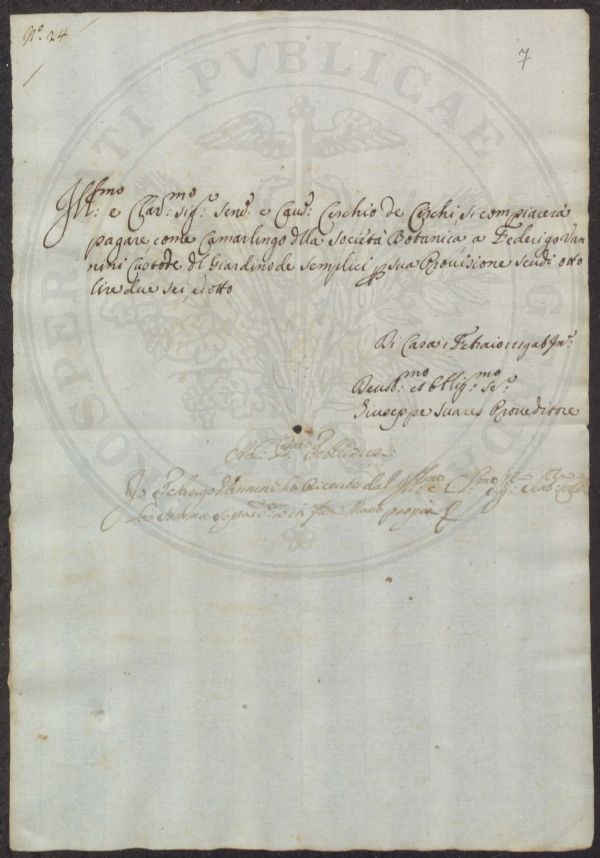 N.° 24
7
Ill:mo e Clar:mo Sig:r Sen:r e Cav:r Cerchio de Cerchi si compiacerà
pagare come Camarlingo dlla Società Botanica a Federigo Van
nini Custode dl Giardino de Semplici p sua Provisione scudi otto
lire due sei, e d otto
Di Casa
Devot:mo et Oblig:mo Se:r
Giuseppe Suares Proveditore
Io Federigo Vannini ho Ricevuto dal Ill:mo e
la somma mano propria
PROSPERITATI PVBLICAE